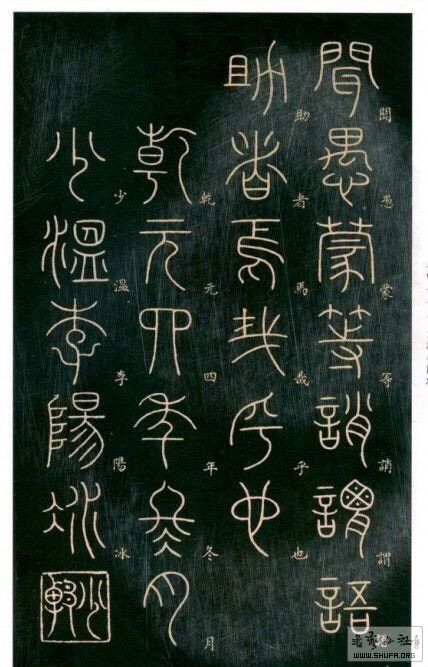 聞愚蒙等誚謂語
聞愚蒙等誚謂
助者焉哉乎也
助者馬哉乎也
乾元四年冬月
乾元四年冬月
少溫李陽冰
少溫李陽冰
书艺公社
WWW.SHUFA.ORG